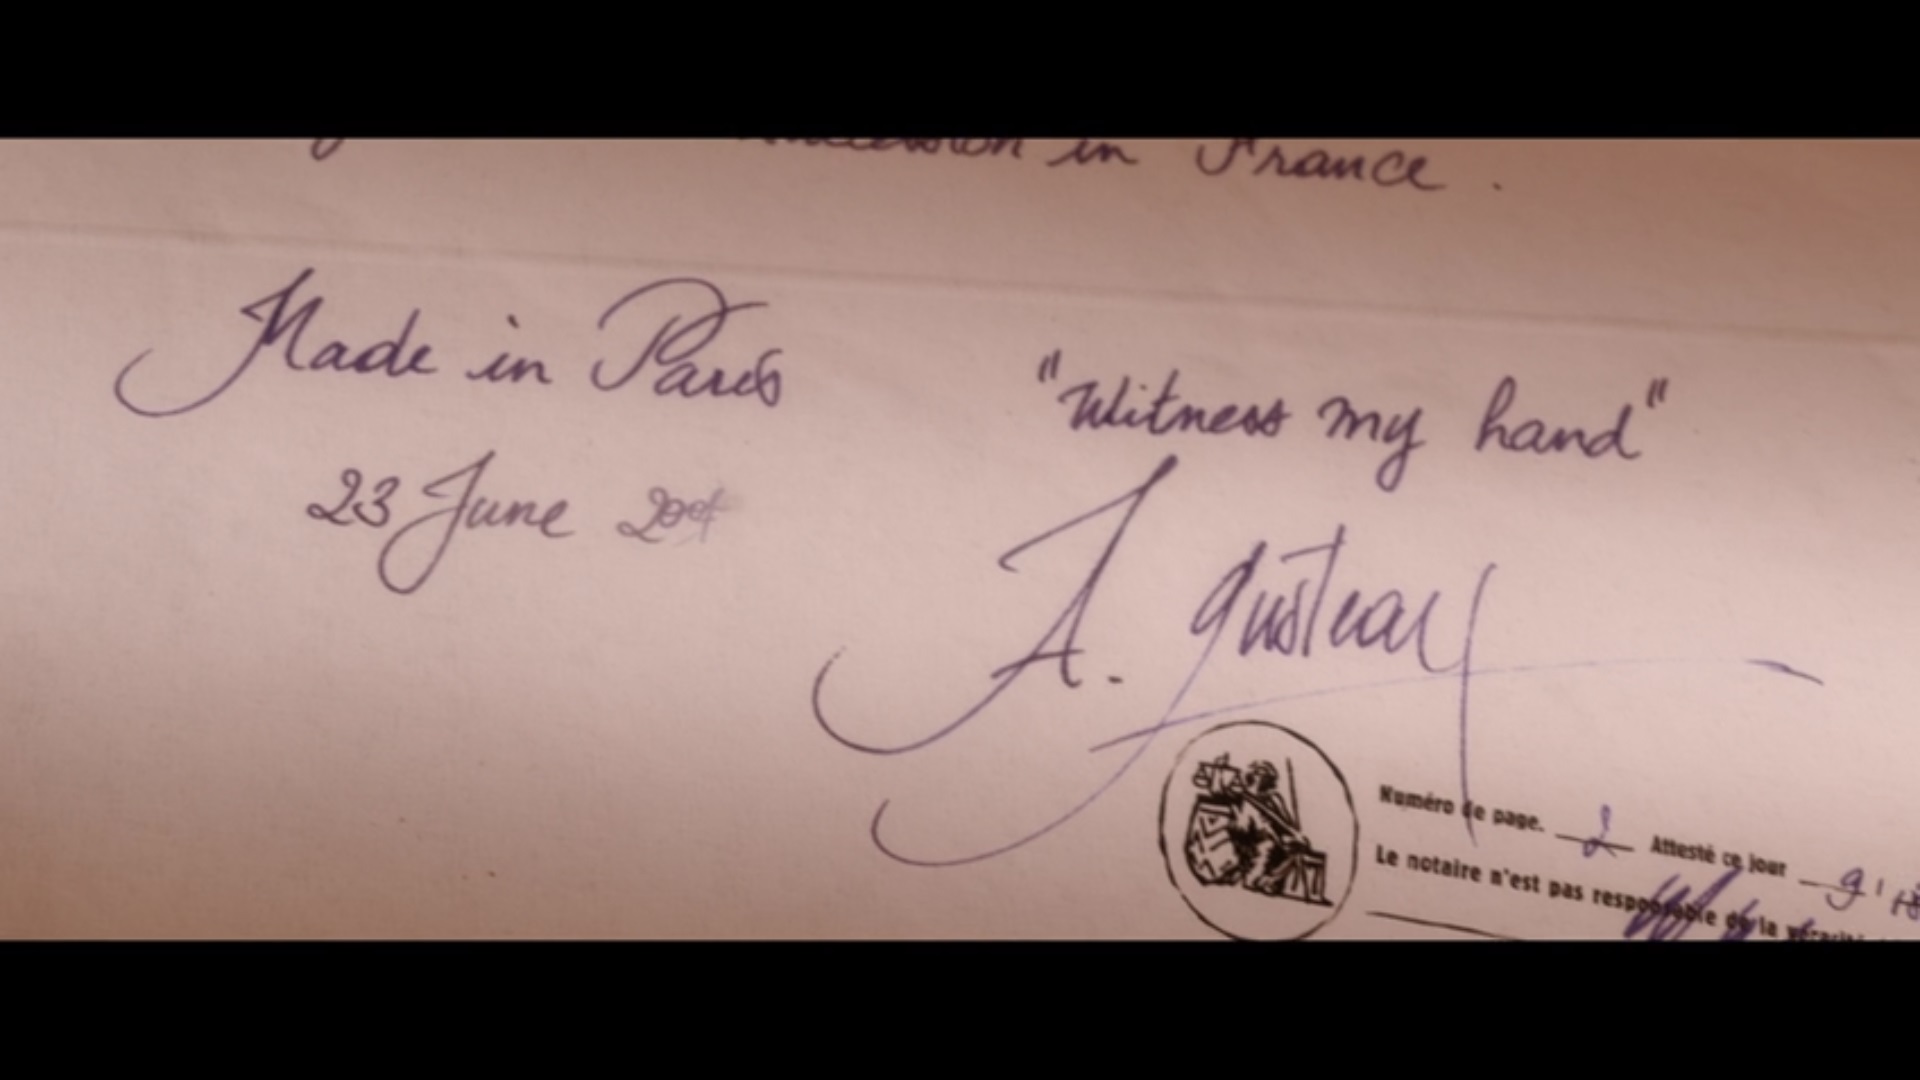 succession in France.
Made in Paris
23 June
"Witness my hand"
A. Gusteau
Numéro de page. 2 Attesté ce jour
Le notaire n'est pas responsable de la véracité